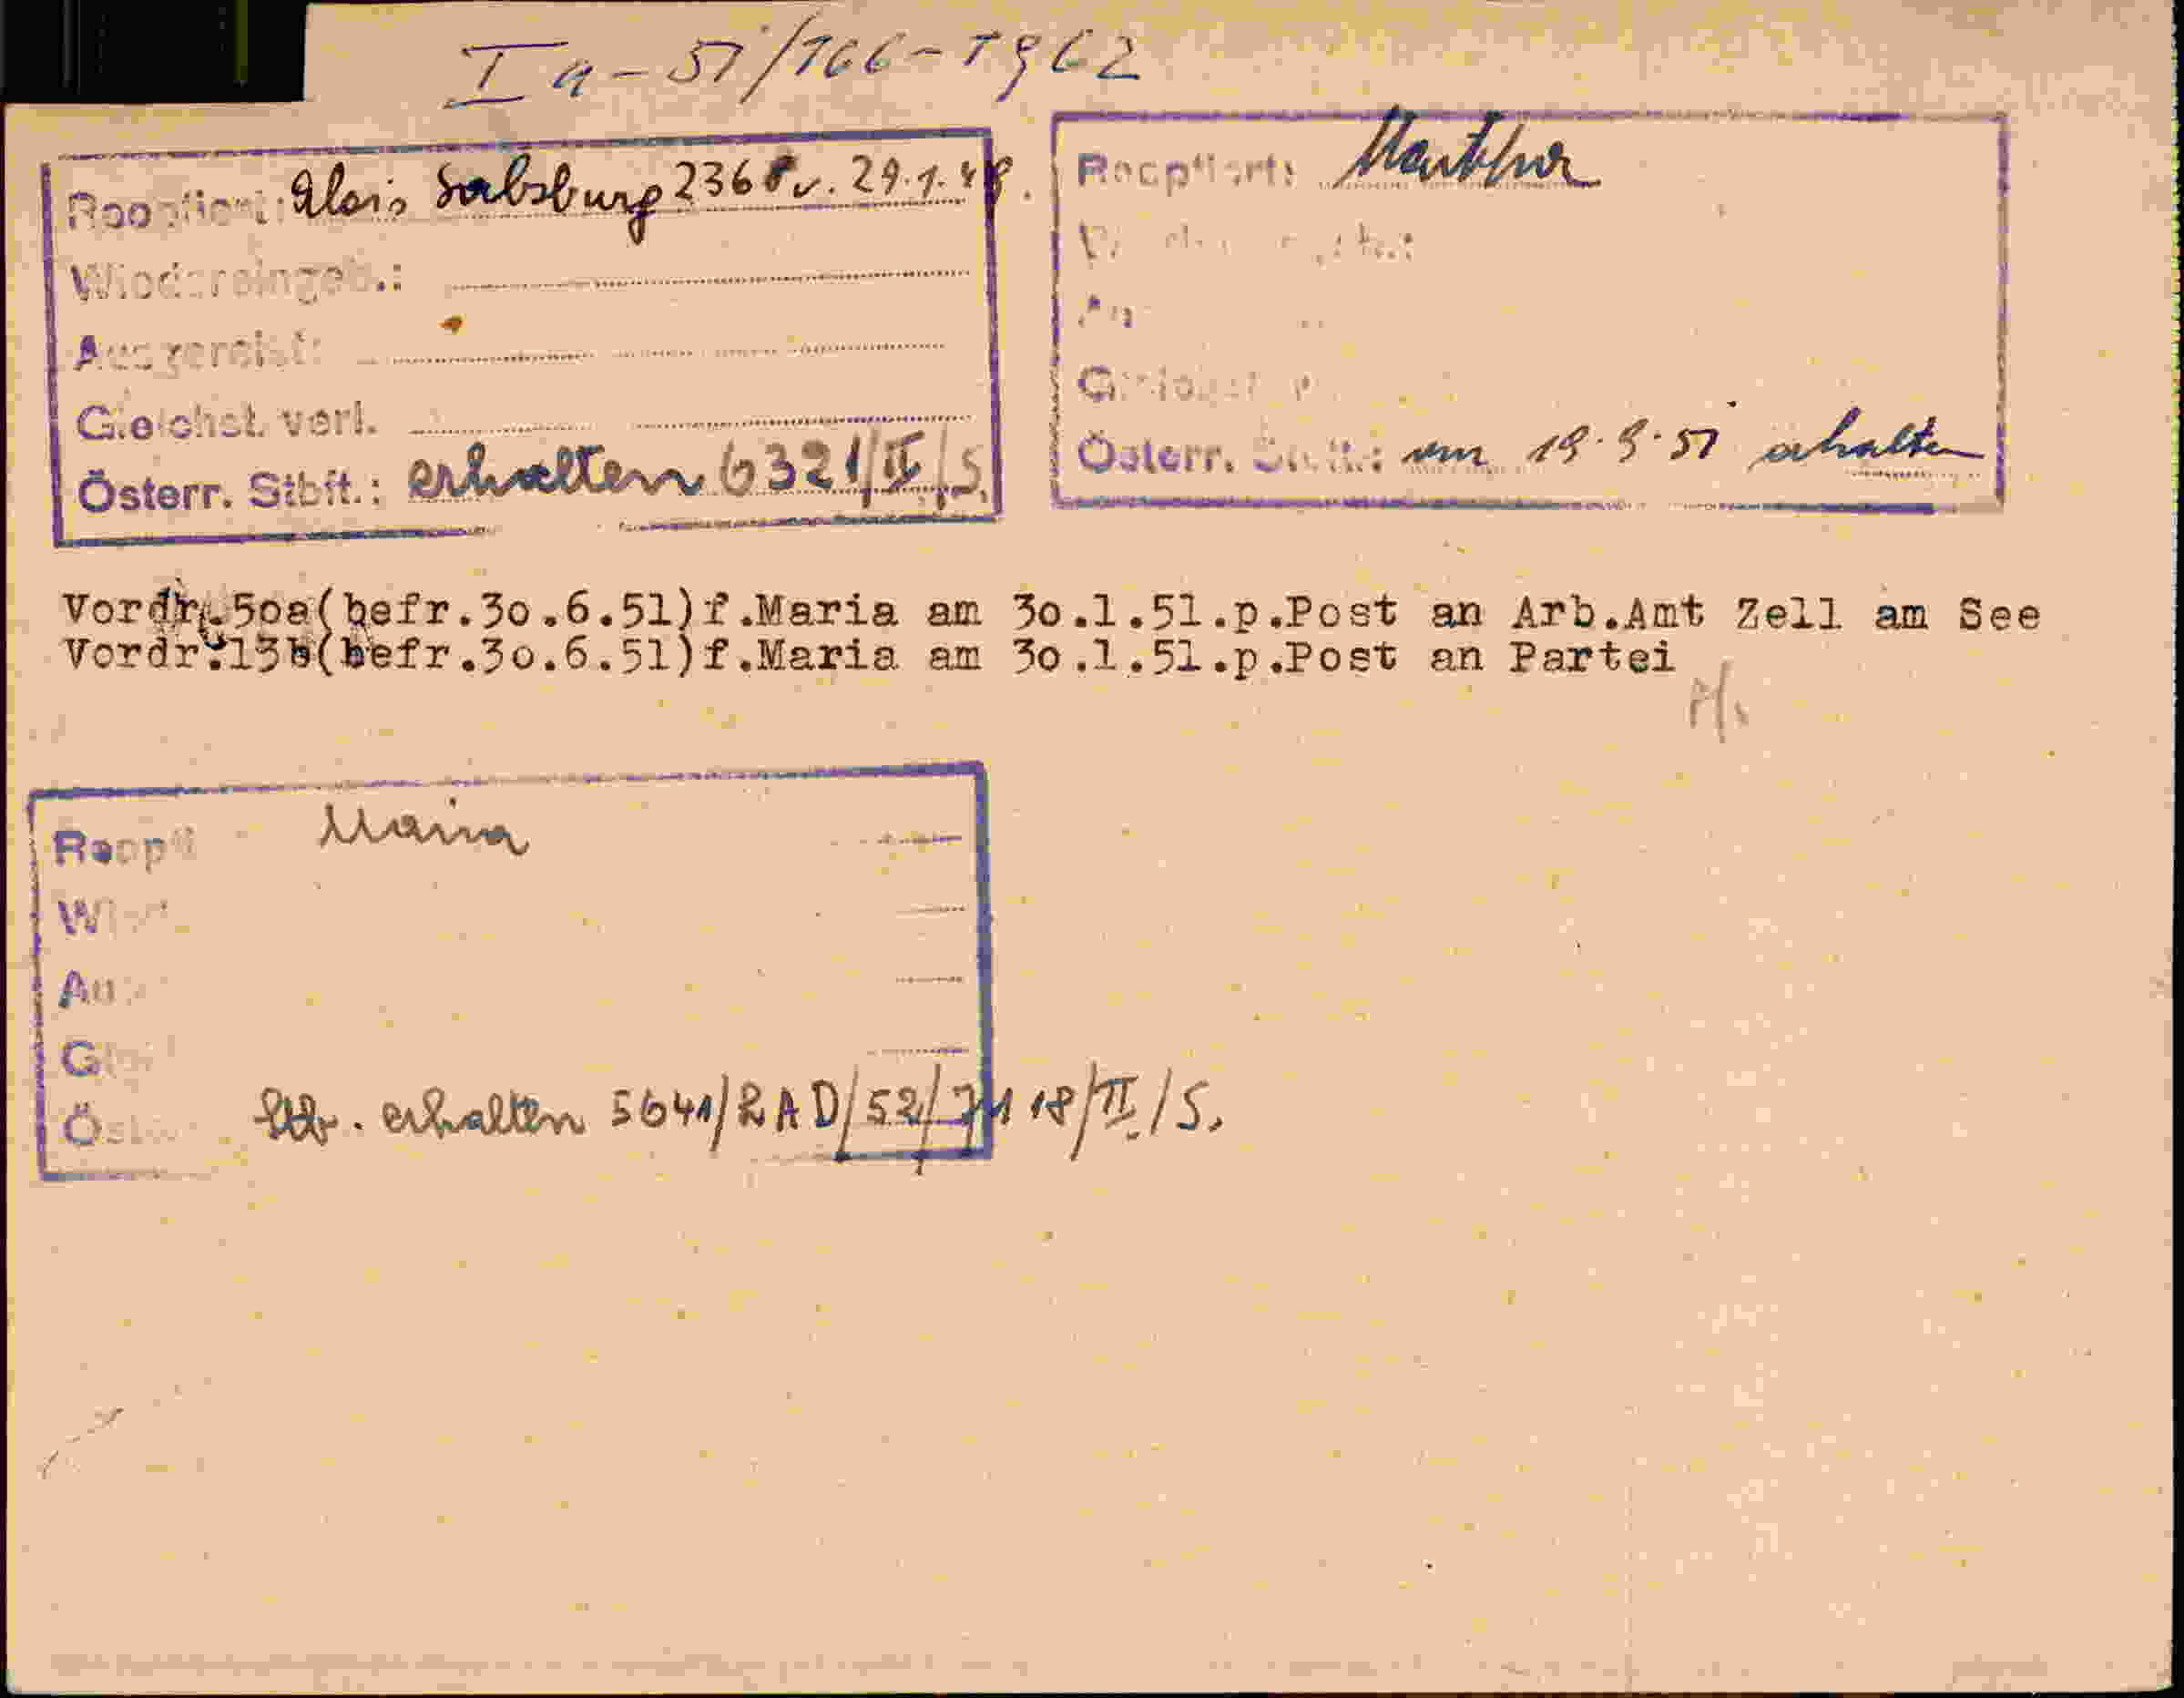 I a - 51/166-1962
Reoptiert: Alois Salzburg 2368 v. 29.1.49.
Wiedereingeb.:
Ausgereist:
Gleichst. verl.
Österr. Stbft.: erhalten 6321/II/S.
Reoptiert:
Österr. Stbft.: am 19.9.51 erhalten
Vordr.50a(befr.30.6.51)f.Maria am 30.1.51.p.Post an Arb.Amt Zell am See
Vordr.13b(befr.30.6.51)f.Maria am 30.1.51.p.Post an Partei
Reopti Maria
Wied
Aus
Gl
Öst Stb. erhalten 5641/RAD/52/7118/II/S.